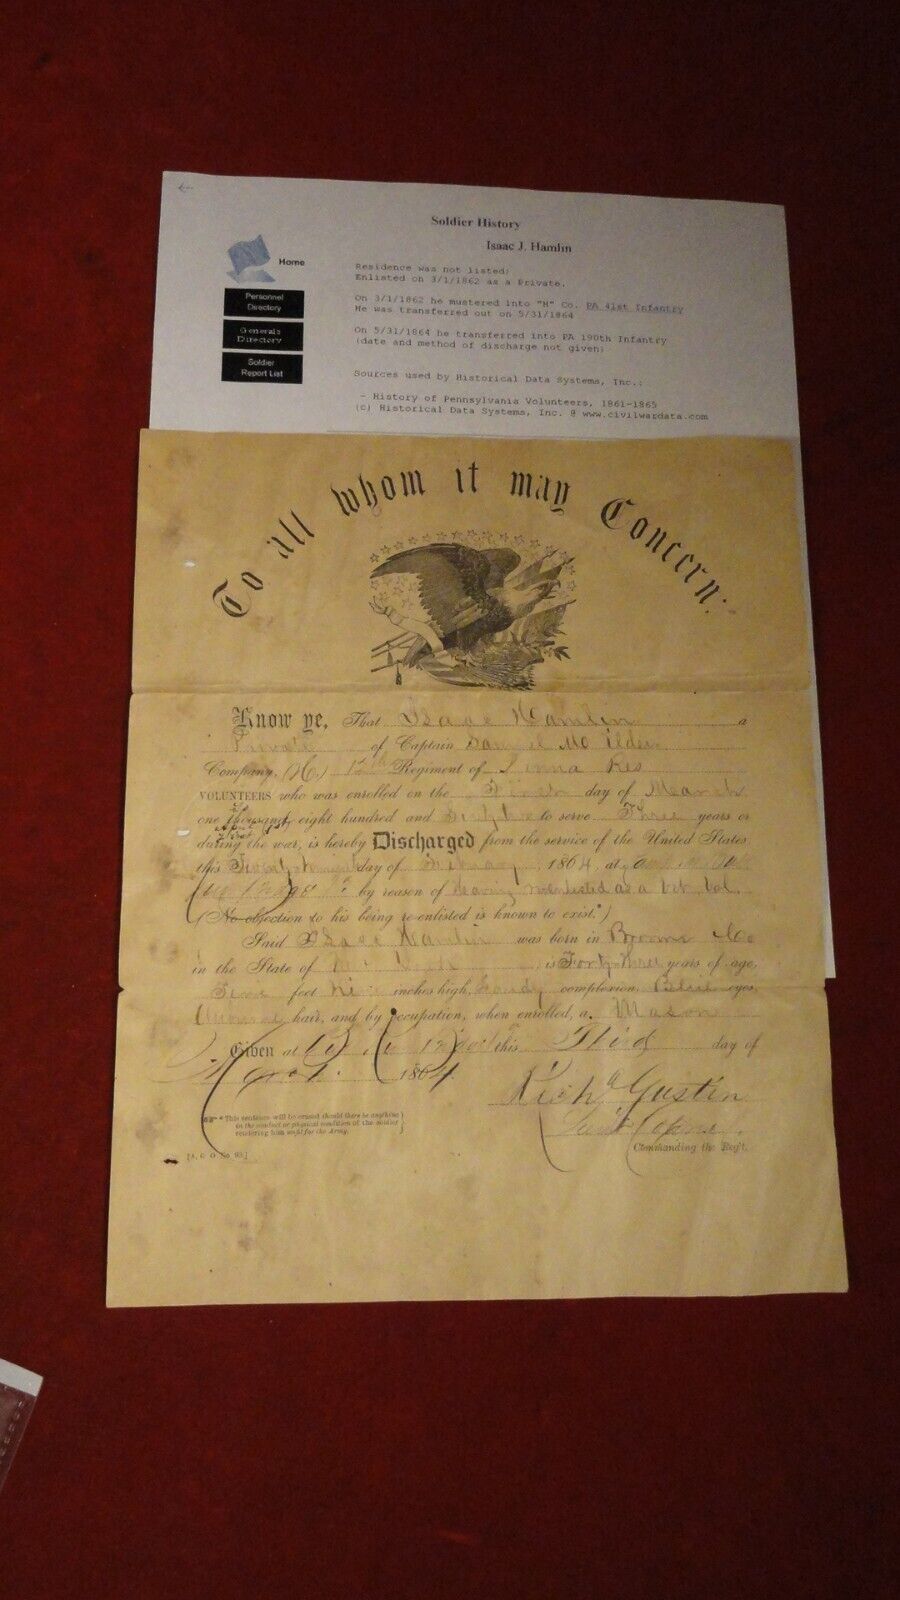 Soldier History
Isaac J. Hamlin
Home
Personnel Directory
Generals Directory
Soldier Report List
Residence was not listed;
Enlisted on 3/1/1862 as a Private.
On 3/1/1862 he mustered into "H" Co. PA 41st Infantry
He was transferred out on 5/31/1864
On 5/31/1864 he transferred into PA 190th Infantry
(date and method of discharge not given)
Sources used by Historical Data Systems, Inc.:
- History of Pennsylvania Volunteers, 1861-1865
(c) Historical Data Systems, Inc. @ www.civilwardata.com
To all whom it may Concern:
Know ye, That Isaac Hamlin a
Private of Captain Samuel
Company, (H.) 12th Regiment of Penna Res
VOLUNTEERS who was enrolled on the day of March
one thousand eight hundred and to serve Three years or
during the war, is hereby Discharged from the service of the United States
this day of 1864, at
by reason of having reenlisted as a Vet. Vol.
(No objection to his being re-enlisted is known to exist.*)
Said Isaac Hamlin was born in Broome Co
in the State of is Forty Three years of age,
feet inches high, Sandy complexion, Blue eyes,
hair, and by occupation, when enrolled, a Mason
Given at this Third day of
1864.
Richd Gustin
Commanding the Reg't.
*This sentence will be erased should there be anything
in the conduct or physical condition of the soldier
rendering him unfit for the Army.